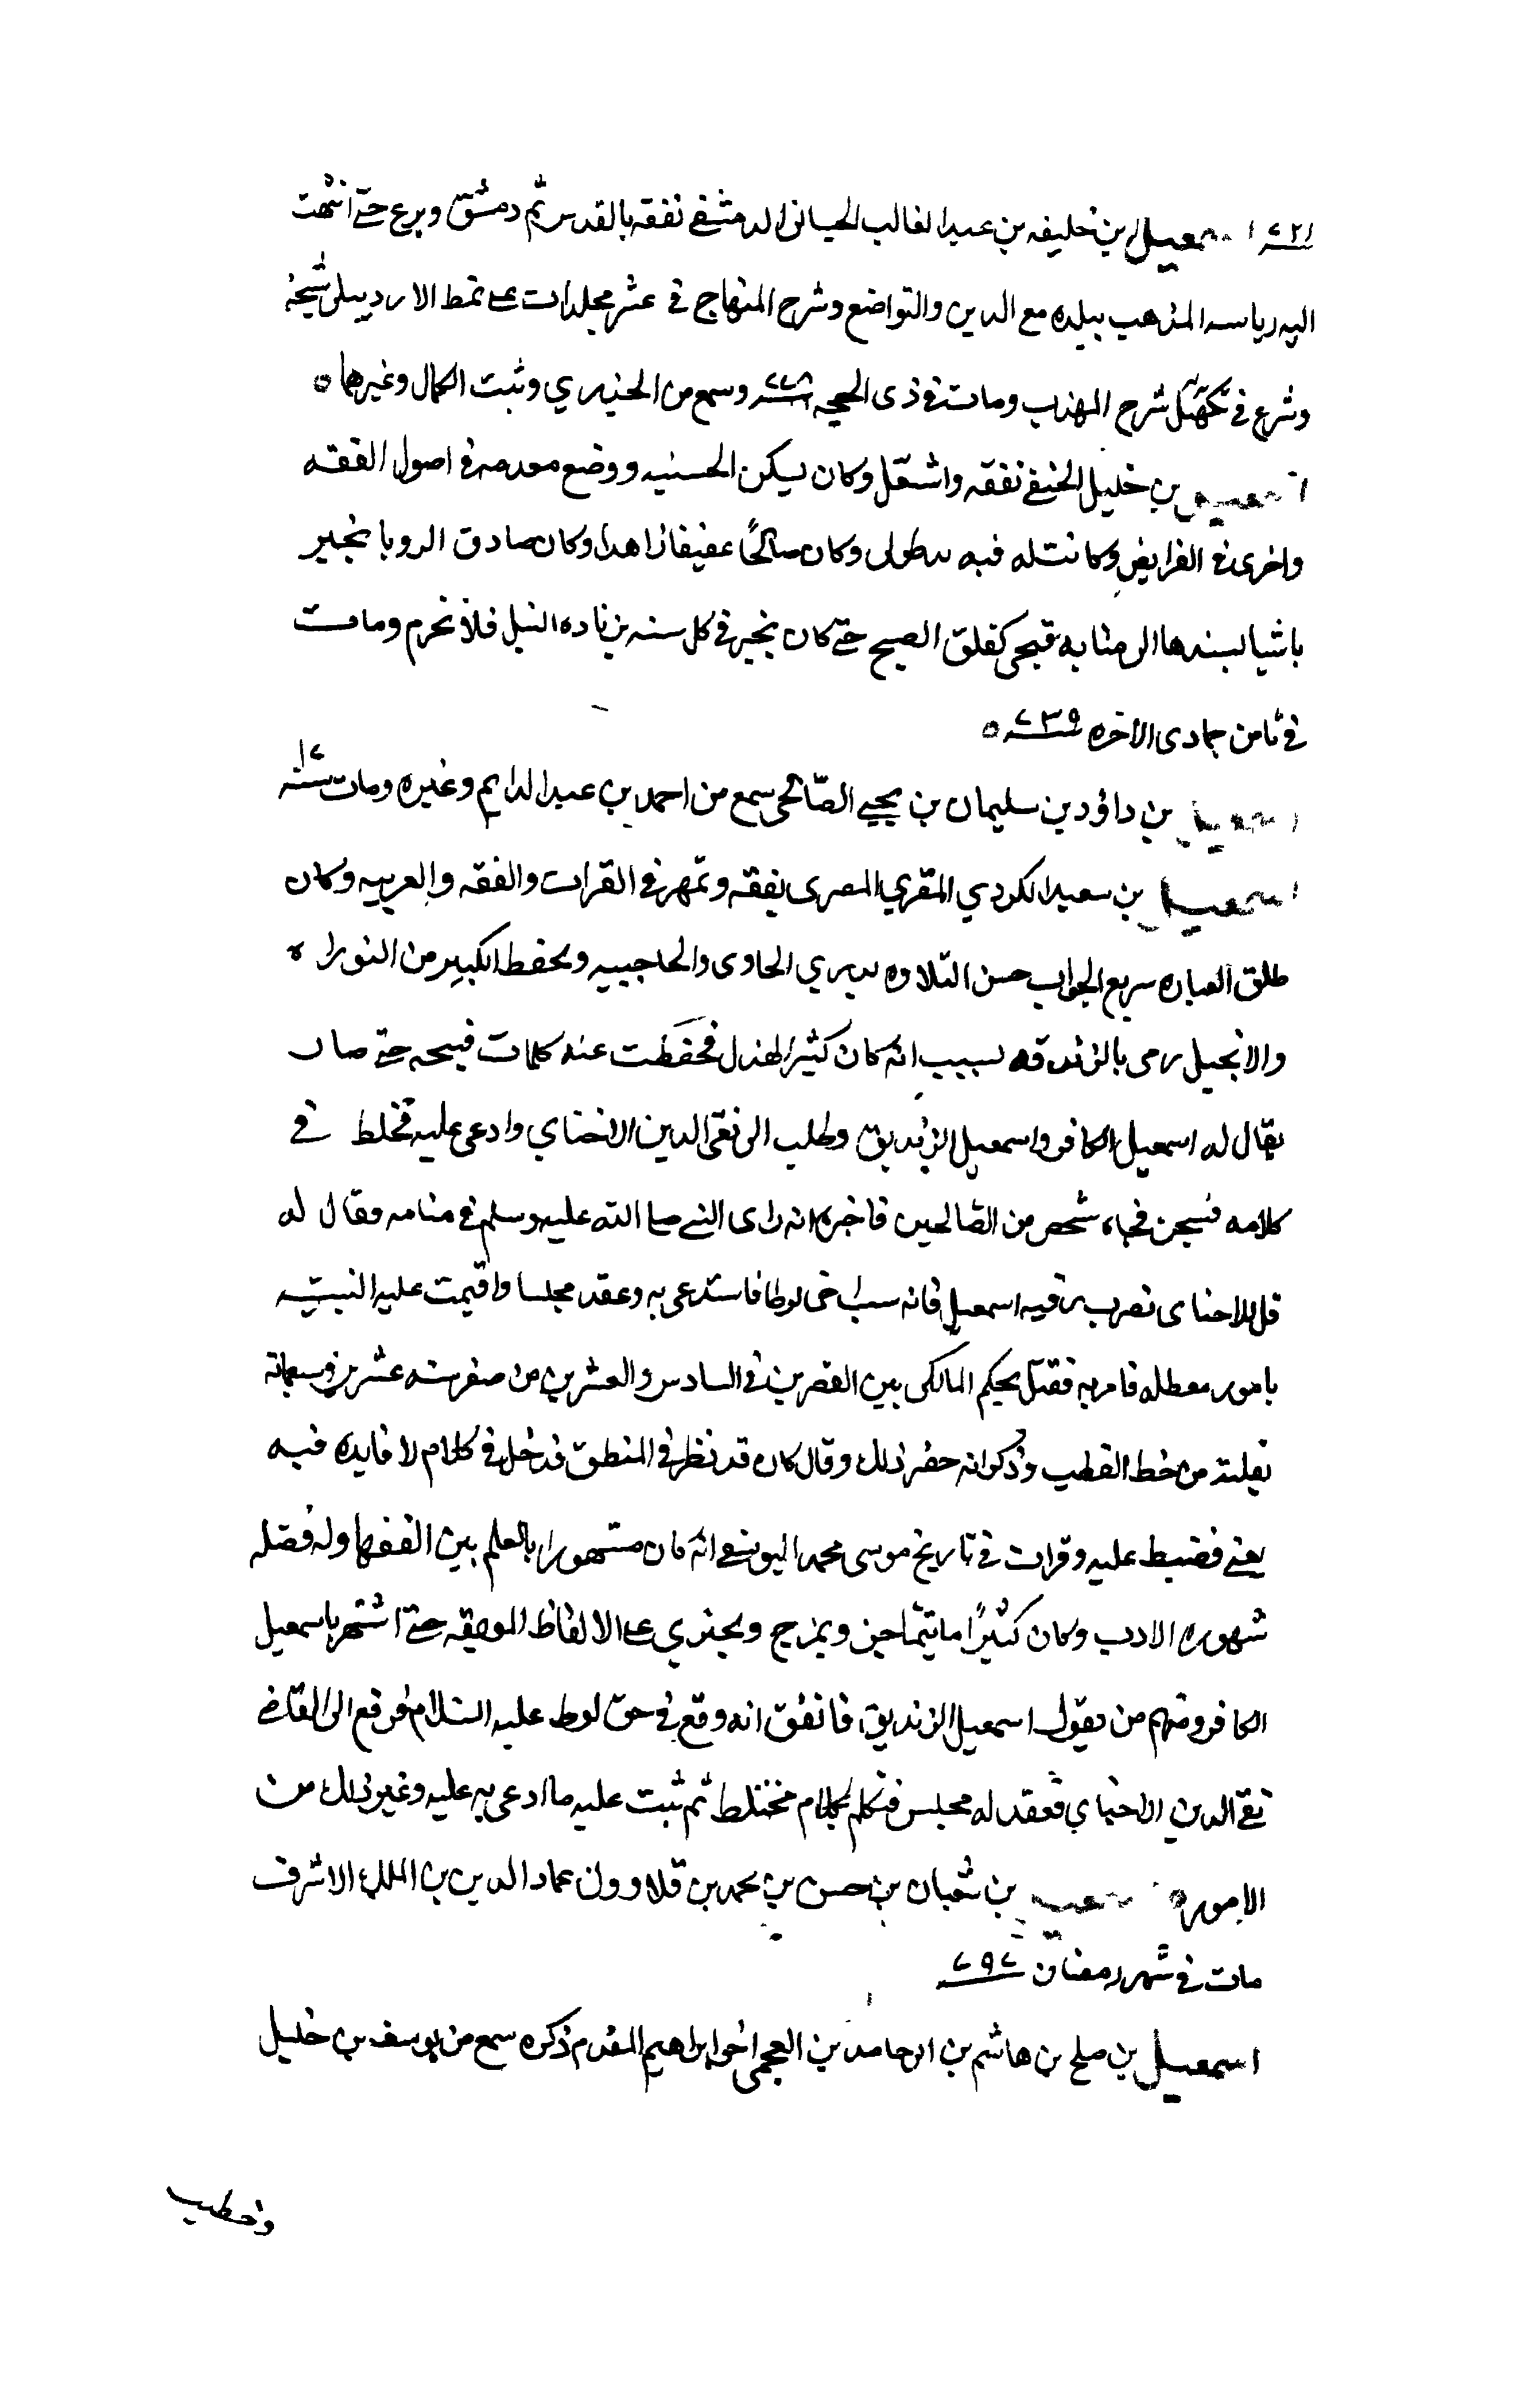 ٧٢١ اسمعيل بن خليفه بن عبد الغالب الحسبانى الدمشقي تفقه بالقدس ثم دمشق وبرع حتى انتهت
اليه رياسه المذهب ببلده مع الدين والتواضع وشرح المنهاج في عشر مجلدات على نمط الاردبيلى شيخه
وشرع في تكميل شرح المهذب ومات فى ذى الحجه ٧٧٨ وسمع من الجزري وثبت الكمال وغيرهما ه
اسمعيل بن خليل الحنفي تفقه واشتغل وكان يسكن الحسنيه ووضع مقدمه في اصول الفقه
واخرى في الفرايض وكانت له فيه يد طولى وكان صالحا عفيفا زاهدا وكان صادق الرويا يخبر
باشيا يسندها الى منا به فتجى كفلق الصبح حتى كان يخبر في كل سنه بزياده النيل فلا تخرم ومات
في ثامن جمادى الاخره ٧٣٩ ه
اسمعيل بن داؤد بن سليمان بن يحيي الصالحى سمع من احمد بن عبد الدايم وغيره ومات سنه ٧١
اسمعيل بن سعيد الكردي المقري المصرى تفقه وتمهر في القرات والفقه والعربيه وكان
طلق العباره سريع الجواب حسن التلاوه يدري الحاوى والحاجبيه ويحفظ الكبير من التوراه
والانجيل رمى بالزندقه بسبب انه كان كثير الهزل فحفظت عنه كلمات قبيحه حتى صار
يقال له اسمعيل الكافر واسمعيل الزنديق وطلب الى تقى الدين الاخناي وادعى عليه فخلط في
كلامه فسجن فجاء شخص من الصالحين فاخبر انه راى النبي صلى الله عليه وسلم في منامه فقال له
قل للاخناى تضرب رقبه اسمعيل فانه سب اخى لوطا فاستدعى به وعقد مجلسا واقيمت عليه البينه
بامور معطله فامر به فقتل بحكم المالكى بين القصرين في السادس والعشرين من صفر سنه عشرين وسبعمائة
نقلته من خط القطب وذكر انه حضر ذلك وقال كان قد نظر في المنطق فدخل في كلام لا فايده فيه
يعني فضبط عليه وقرات في تاريخ موسى محمد اليوسفي انه كان مشهورا بالعلم بين الفقها وله فضله
شهوره الادب وكان كثيرا ما يتماجن ويمزح ويجتري على الالفاظ الموبقه حتى اشتهر باسمعيل
الكافر ومنهم من يقول اسمعيل الزنديق فاتفق انه وقع في حق لوط عليه السلام فرفع الى القاضي
تقي الدين الاخناي فعقد له مجلس فتكلم بكلام مختلط ثم ثبت عليه ما ادعى به عليه وغير ذلك من
الامور ه اسمعيل بن شعبان بن حسن بن محمد بن قلاوون عماد الدين بن الملك الاشرف
مات في شهر رمضان ٧٩٧
اسمعيل بن صلح بن هاشم بن ابى حامد بن العجمى اخو ابراهيم المقدم ذكره سمع من يوسف بن خليل
واخطب